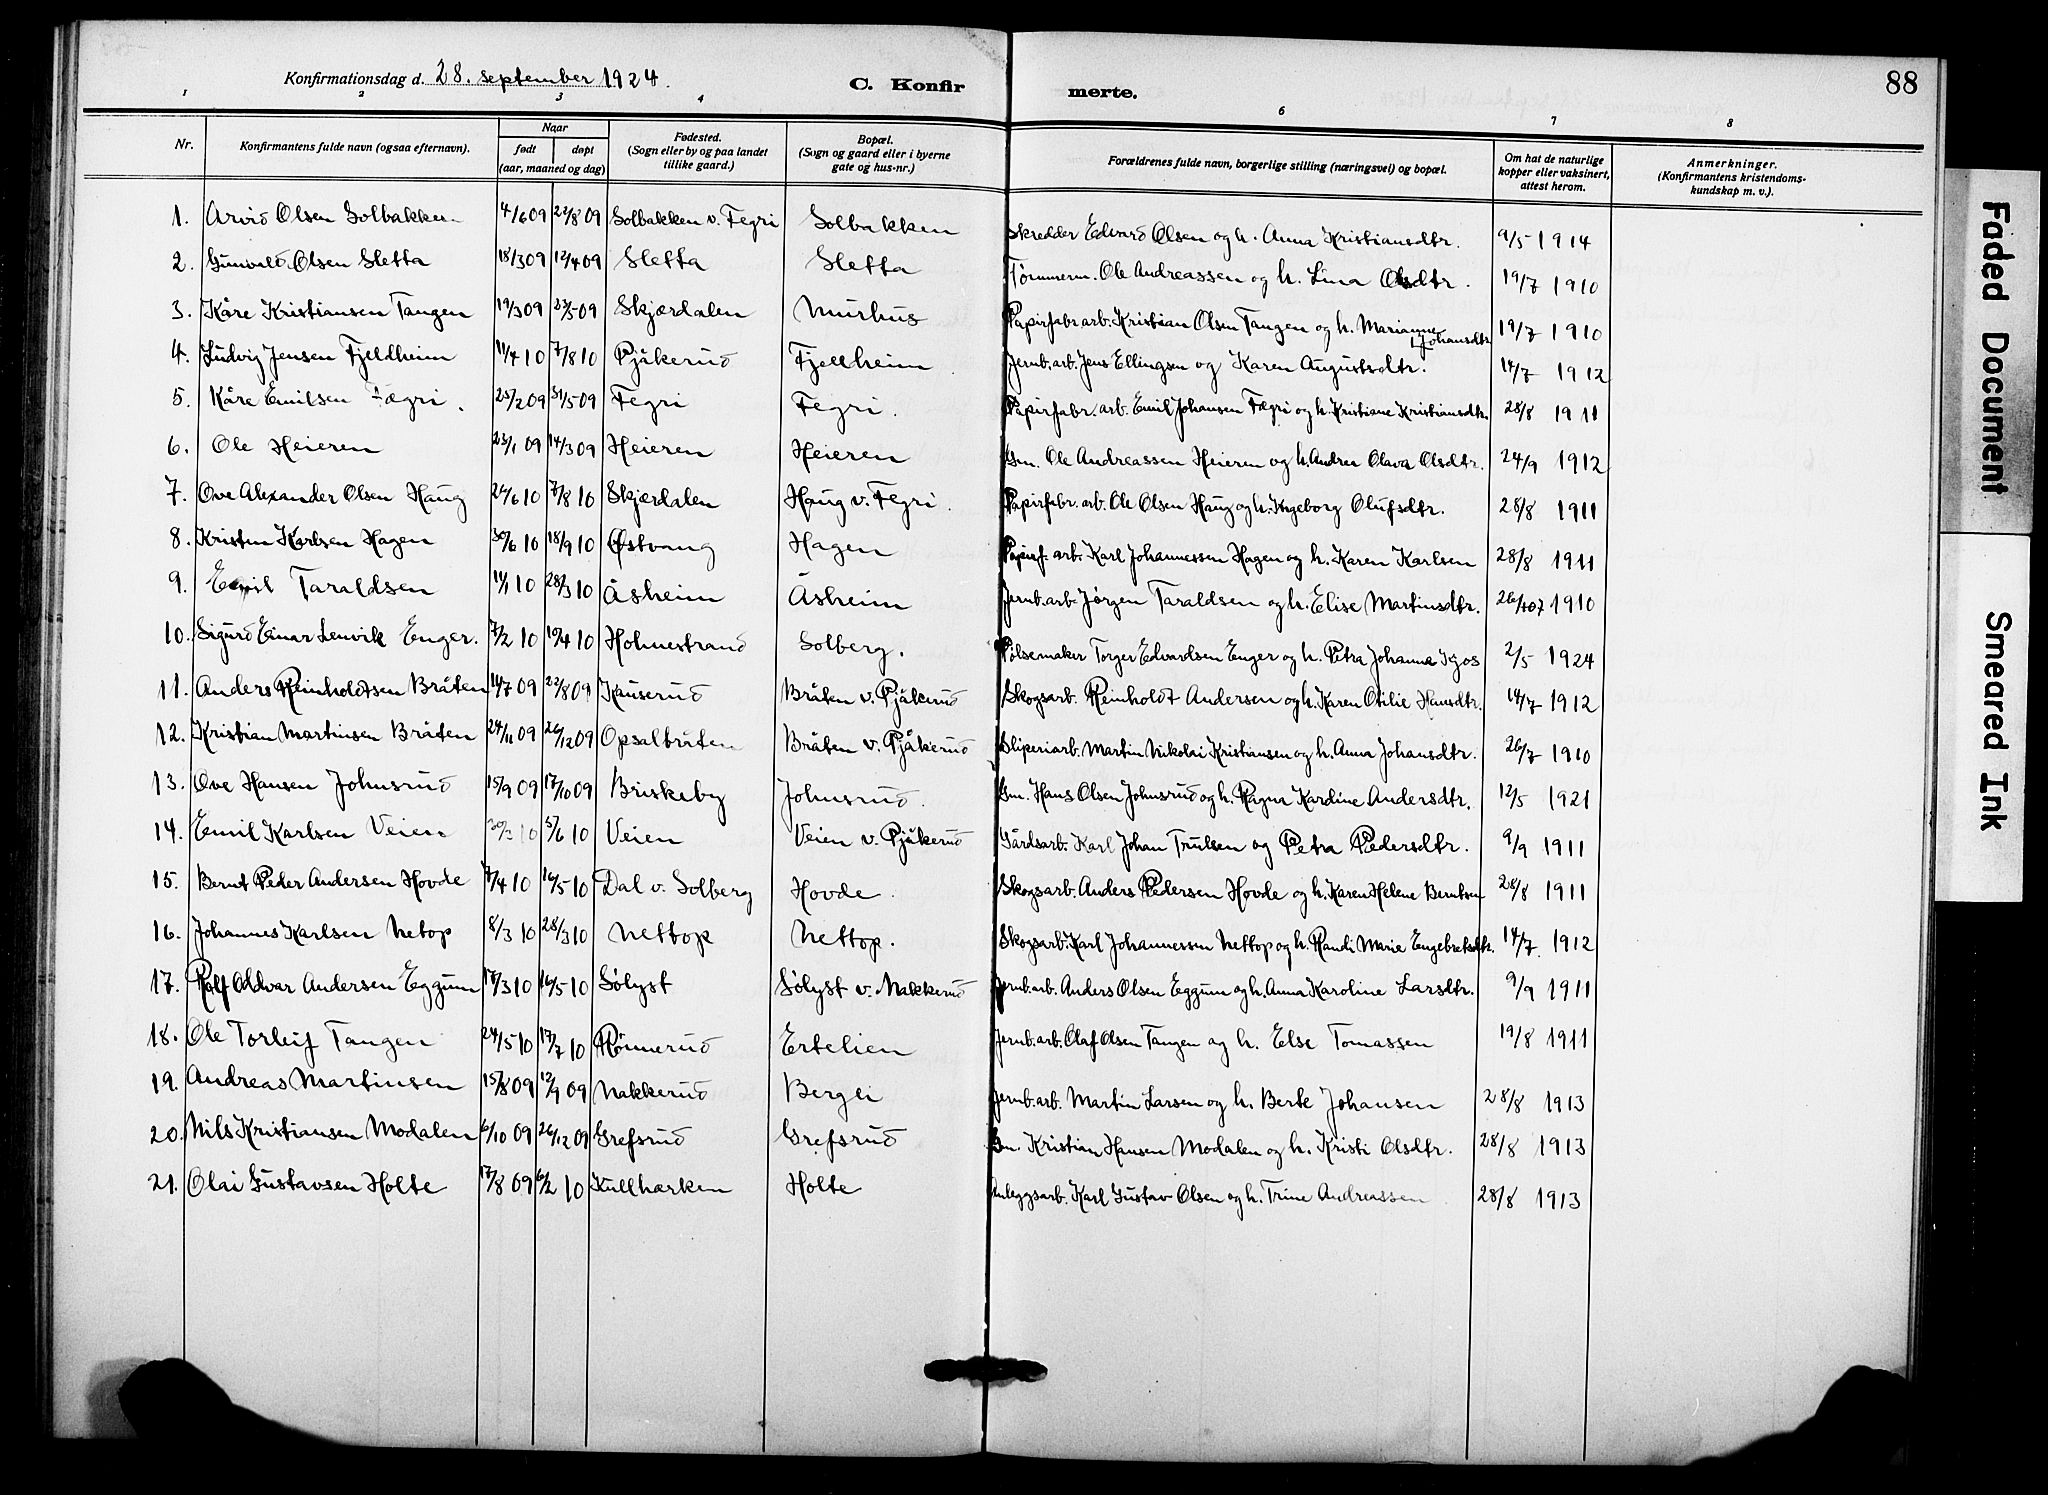 Konfirmationsdag d. 28. september 1924. C. Konfir merte. 88
1 2 3 4 6 7 8
Nr. Konfirmantens fulde navn (ogsaa efternavn). Naar født døpt (aar, maaned og dag) Fødested. (Sogn eller by og paa landet tillike gaard.) Bopæl. (Sogn og gaard eller i byerne gate og hus-nr.) Forældrenes fulde navn, borgerlige stilling (næringsvei) og bopæl. Om hat de naturlige kopper eller vaksinert, attest herom. Anmerkninger. (Konfirmantens kristendoms-kundskap m. v.).
1. Arvid Olsen Solbakken 4/6 09 22/8 09 Solbakken v. Fegri Solbakken Skredder Edvard Olsen og h. Anna Kristiansdtr. 9/5 1914
2. Gunvald Olsen Sletta 18/3 09 12/4 09 Sletta Sletta Tømmerm. Ole Andreassen og h. Lina Olsdtr. 19/7 1910
3. Kåre Kristiansen Tangen 19/3 09 23/5 09 Skjærdalen Murhus Papirfabr. arb. Kristian Olsen Tangen og h. Marianne Johansdtr 19/7 1910
4. Ludvig Jensen Fjeldheim 11/4 10 7/8 10 Pjåkerud Fjellheim Jernb. arb. Jens Ellingsen og Karen Augustsdtr. 14/7 1912
5. Kåre Emilsen Fægri. 25/2 09 31/5 09 Fegri Fegri. Papirfabr. arb. Emil Johansen Fægri og h. Kristiane Kristiansdtr. 28/8 1911
6. Ole Heieren 23/1 09 14/3 09 Heieren Heieren Gm. Ole Andreassen Heieren og h. Andrea Olava Olsdtr. 24/9 1912
7. Ove Alexander Olsen Haug 24/6 10 7/8 10 Skjærdalen Haug v. Fegri. Papirfabr. arb. Ole Olsen Haug og h. Ingeborg Olufsdtr. 28/8 1911
8. Kristen Karlsen Hagen 30/6 10 18/9 10 Østvang Hagen Papirf. arb. Karl Johannessen Hagen og h. Karen Karlsen 28/8 1911
9. Emil Taraldsen 11/1 10 28/3 10 Åsheim Åsheim Jernb. arb. Jørgen Taraldsen og h. Elise Martinsdtr. 1910
10. Sigurd Einar Lenvik Enger. 7/2 10 10/4 10 Holmestrand Solberg. Pølsemaker Torger Edvardsen Enger og h. Petra Johanna 2/5 1924
11. Anders Reinholdtsen Bråten 14/7 09 22/8 09 Kauserud Bråten v. Pjåkerud Skogsarb. Reinholdt Andersen og h. Karen Otilie Hansdtr. 14/7 1912
12. Kristian Martinsen Bråten 24/11 09 26/12 09 Opsalbråten Bråten v. Pjåkerud Sliperiarb. Martin Nikolai Kristiansen og h. Anna Johansdtr. 26/7 1910
13. Ove Hansen Johnsrud 15/9 09 17/10 09 Briskeby Johnsrud. Gm. Hans Olsen Johnsrud og h. Ragna Kardine Andersdtr. 12/5 1921
14. Emil Karlsen Veien 30/3 10 5/6 10 Veien Veien v. Pjåkerud Gårdsarb. Karl Johan Trulsen og Petra Pedersdtr. 9/9 1911
15. Bernt Peder Andersen Hovde 7/4 10 16/5 10 Dal v. Solberg Hovde. Skogsarb. Anders Pedersen Hovde og h. Karen Helene Berntsen 28/8 1911
16. Johannes Karlsen Netop 8/3 10 28/3 10 Nettop Nettop. Skogsarb. Karl Johannessen Nettop og h. Randi Marie Engebretsdtr. 14/7. 1912
17. Rolf Oddvar Andersen Eggum 17/3 10 16/5 10 Sølyst Sølyst v. Nakkerud Jernb. arb. Anders Olsen Eggum og h. Anna Karoline Larsdtr. 9/9 1911
18. Ole Torleif Tangen 24/5 10 17/7 10 Rønnerud Ertelien Jernb. arb. Olaf Olsen Tangen og h. Else Tomassen 19/8 1911
19. Andreas Martinsen 15/8 09 12/9 09 Nakkerud Bergli Jernb. arb. Martin Larsen og h. Berte Johansen 28/8 1913
20. Nils Kristiansen Modalen 6/10 09 26/12 09 Grefsrud Grefsrud Gm. Kristian Hansen Modalen og h. Kristi Olsdtr. 28/8 1913
21. Olai Gustavsen Holte 17/8 09 6/2 10 Kullherken Holte Anleggsarb. Karl Gustav Olsen og h. Trine Andreassen 28/8 1913
Faded Document
Smeared Ink